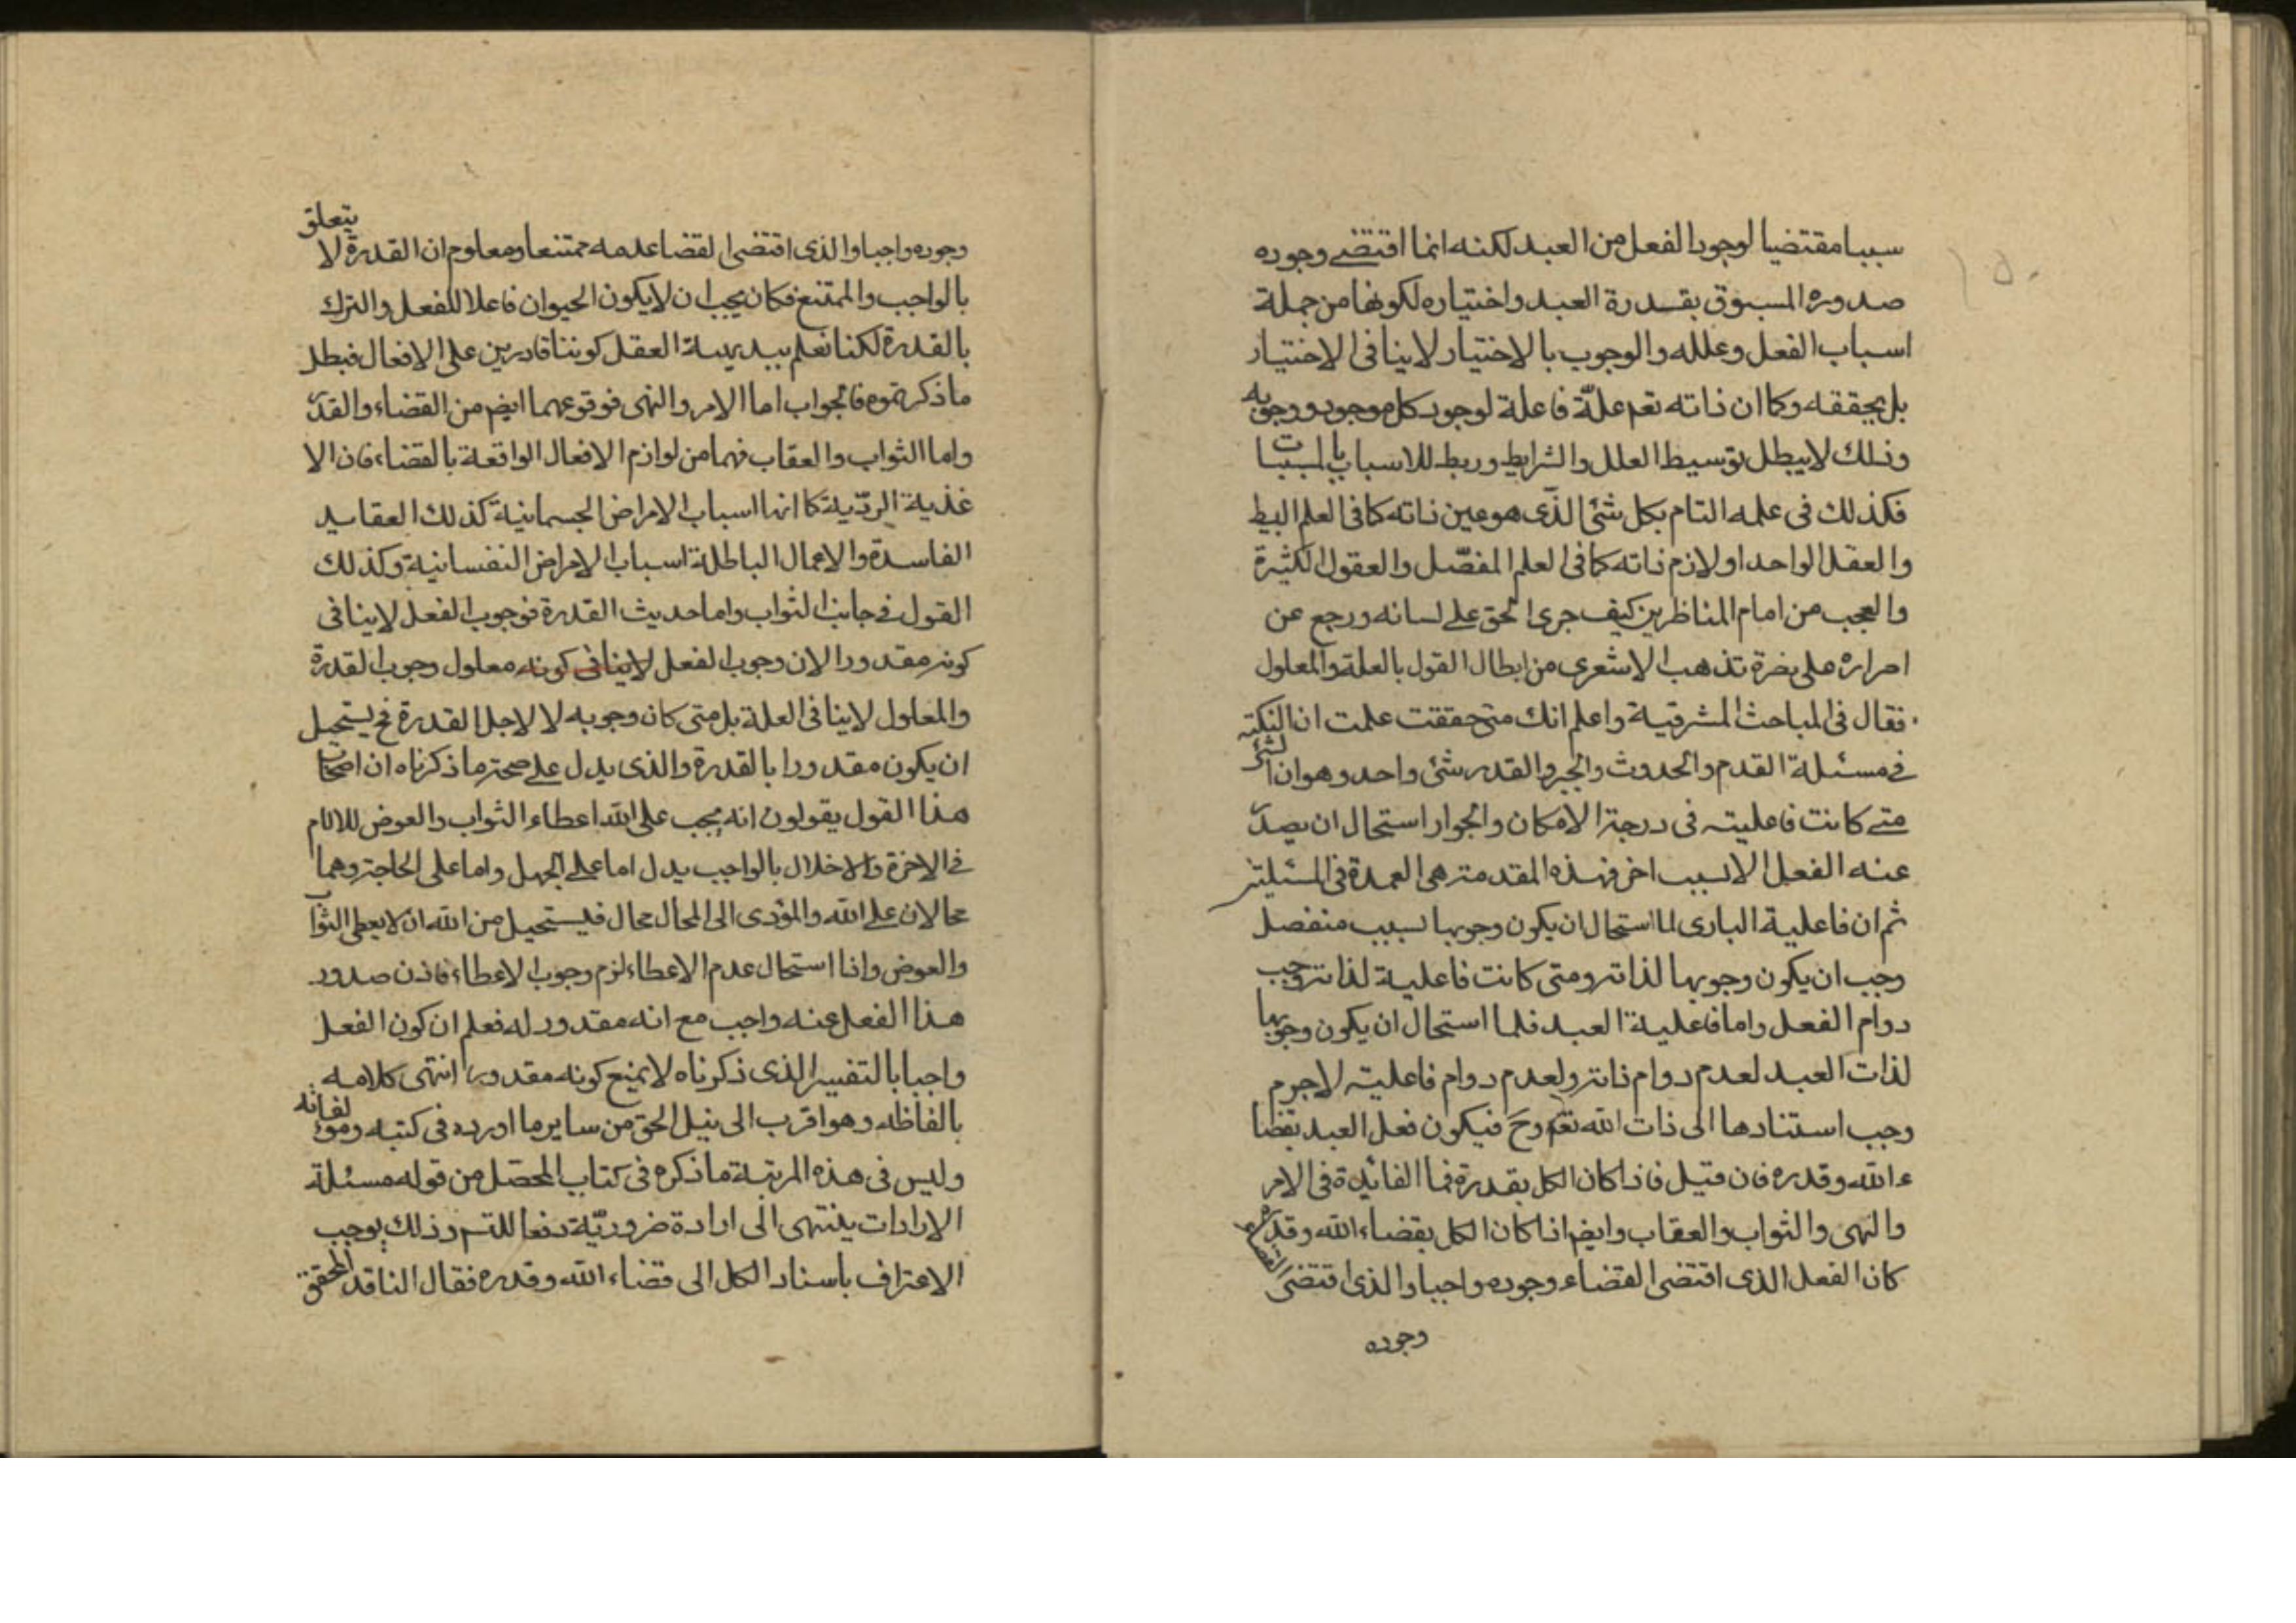 سببا مقتضيا لوجود الفعل من العبد لكنه انما اقتضى وجوده
صدوره المسبوق بقدرة العبد واختياره لكونها من جملة
اسباب الفعل وعلله والوجوب بالاختيار لاينافى الاختيار
بل يحققه وكما ان ذاته تعم علّة فاعلة لوجود كل موجود ووجوبه
وذلك لايبطل توسيط العلل والشرايط وربط للاسباب بالمسببات
فكذلك فى علمه التام بكل شئ الذى هو عين ذاته كما فى العلم البسيط
والعقل الواحد او لازم ذاته كما فى العلم المفصّل والعقول الكثيرة
والعجب من امام المناظرين كيف جرى الحق على لسانه ورجع عن
اصراره على نصرة تذهب الاشعرى من ابطال القول بالعلة والمعلول
فقال فى المباحث المشرقية واعلم انك متى حققت علمت ان النكتة
فى مسئلة القدم والحدوث والجبر والقدر شئ واحد وهو ان الشئ
متى كانت فاعليته فى درجة الامكان والجواز استحال ان يصدر
عنه الفعل الا لسبب اخر فهذه المقدمة هى العمدة فى المسئلتين
ثم ان فاعلية البارى لما استحال ان يكون وجوبها بسبب منفصل
وجب ان يكون وجوبها لذاته ومتى كانت فاعلية لذاته وجب
دوام الفعل واما فاعلية العبد فلما استحال ان يكون وجوبها
لذات العبد لعدم دوام ذاته ولعدم دوام فاعليته لاجرم
وجب استنادها الى ذات الله تعم وح فيكون فعل العبد بقضا
ء الله وقدره فان قيل فاذا كان الكل بقدرة فما الفائدة فى الامر
والنهى والثواب والعقاب وايضم اذا كان الكل بقضاء الله وقدره
كان الفعل الذى اقتضى القضاء وجوده واجبا والذى اقتضى القضاء
وجوده
وجوده واجبا والذى اقتضى القضا عدمه ممتنعا ومعلوم ان القدرة لا يتعلق
بالواجب والممتنع فكان يجب ان لايكون الحيوان فاعلا للفعل والترك
بالقدرة لكنا نعلم ببديهية العقل كوننا قادرين على الافعال فبطل
ماذكرتموه فالجواب اما الامر والنهى فوقوعهما ايضم من القضاء والقدر
واما الثواب والعقاب فهما من لوازم الافعال الواقعة بالقضاء فان الا
غذية الرديّة كما انها اسباب الامراض الجسمانية كذلك العقايد
الفاسدة والاعمال الباطلة اسباب الامراض النفسانية وكذلك
القول فى جانب الثواب واما حديث القدرة فوجوب الفعل لاينافى
كونه مقدورا لان وجوب الفعل لاينافى كونه معلول وجوب القدرة
والمعلول لاينافى العلة بل متى كان وجوبه لا لاجل القدرة فح يستحيل
ان يكون مقدورا بالقدرة والذى يدل على صحة ماذكرناه ان اصحاب
هذا القول يقولون انه يجب على الله اعطاء الثواب والعوض للالام
فى الاخرة والاخلال بالواجب يدل اما على الجهل واما على الحاجة وهما
محالان على الله والمؤدى الى المحال محال فيستحيل من الله ان لايعطى الثواب
والعوض واذا استحال عدم الاعطاء لزم وجوب الاعطاء فاذن صدور
هذا الفعل عنه واجب مع انه مقدور له فعلم ان كون الفعل
واجبا بالتفسير الذى ذكرناه لايمنع كونه مقدورا انتهى كلامه
بالفاظه وهو اقرب الى نيل الحق من ساير ما اورده فى كتبه ومؤلفاته
وليس فى هذه المرتبة ماذكره فى كتاب المحصّل من قوله مسئلة
الارادات ينتهى الى ارادة ضروريّة دفعا للتسم وذلك يوجب
الاعتراف باسناد الكل الى قضاء الله وقدره فقال الناقد المحقق